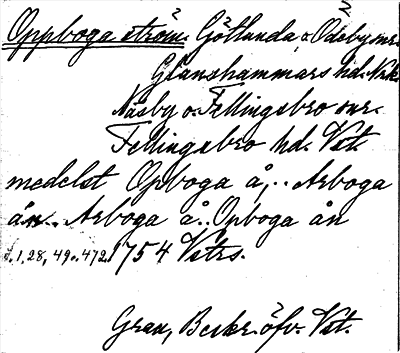 Oppboga ström. Götlunda o. Ödeby snr.
Glanshammars hd. Nrk.
Näsby o. Fellingsbro snr.
Fellingsbro hd. Vstl.
medelst Opboga å, .. Arboga
ån .. Arboga å .. Opboga ån
s. 1, 28, 49 o. 472. 1754 Vstrs.
Grau, Beskr. öfv. Vstl.